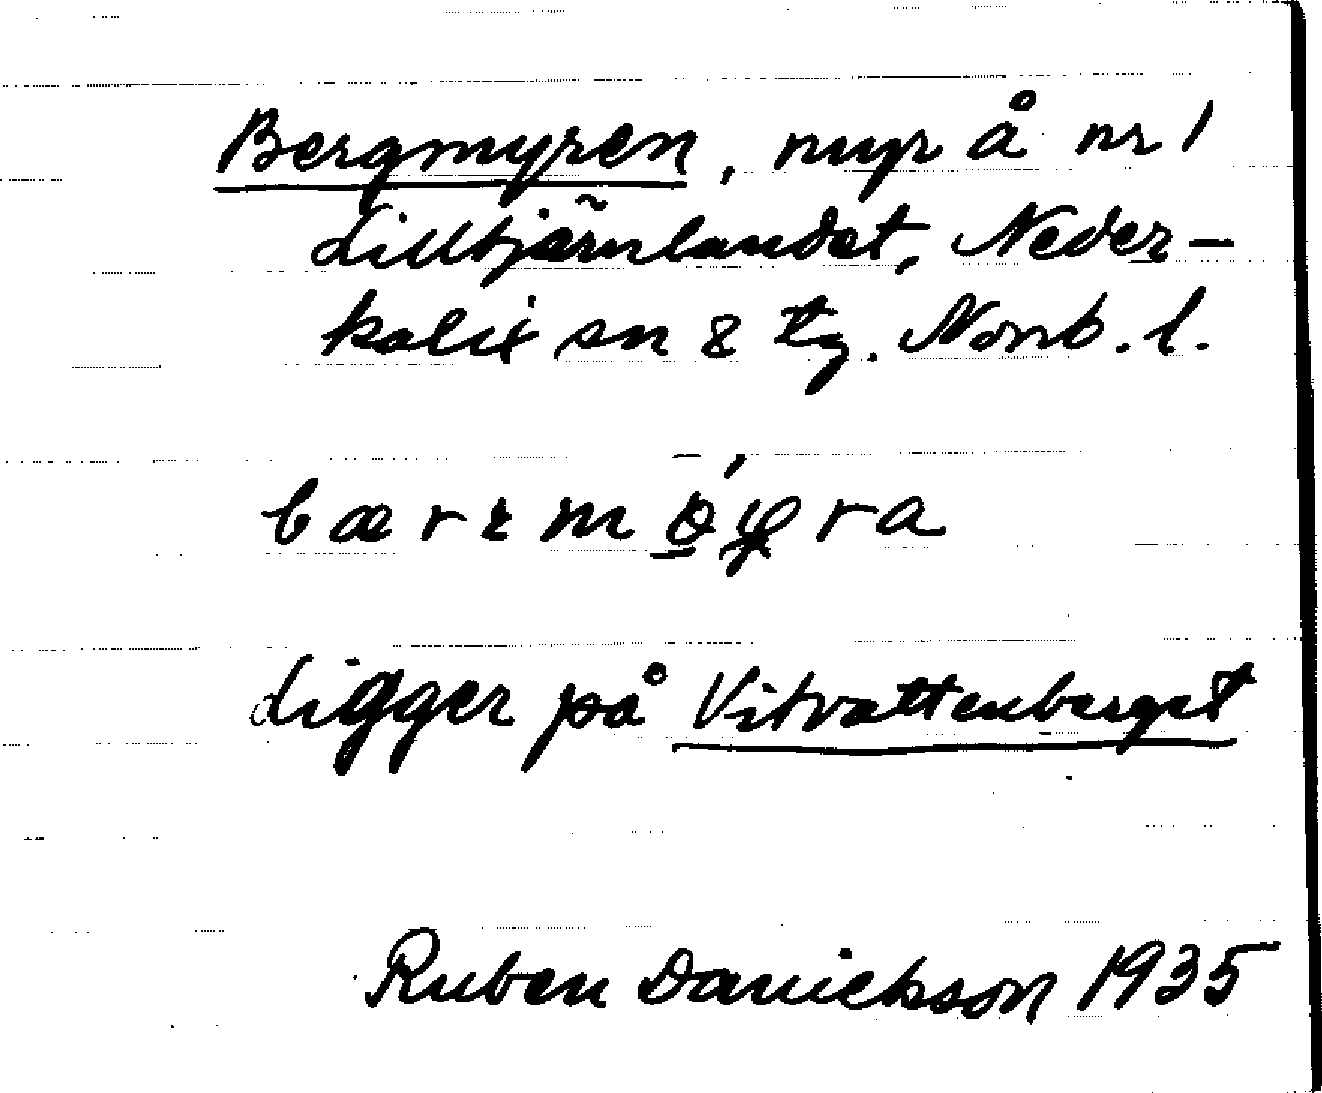 Bergmyren, myr å nr 1
Lilltjärnlandet, Neder-
kalix sn & tg. Norrb. l.
Ligger på Vitvattenberget
Ruben Danielsson 1935